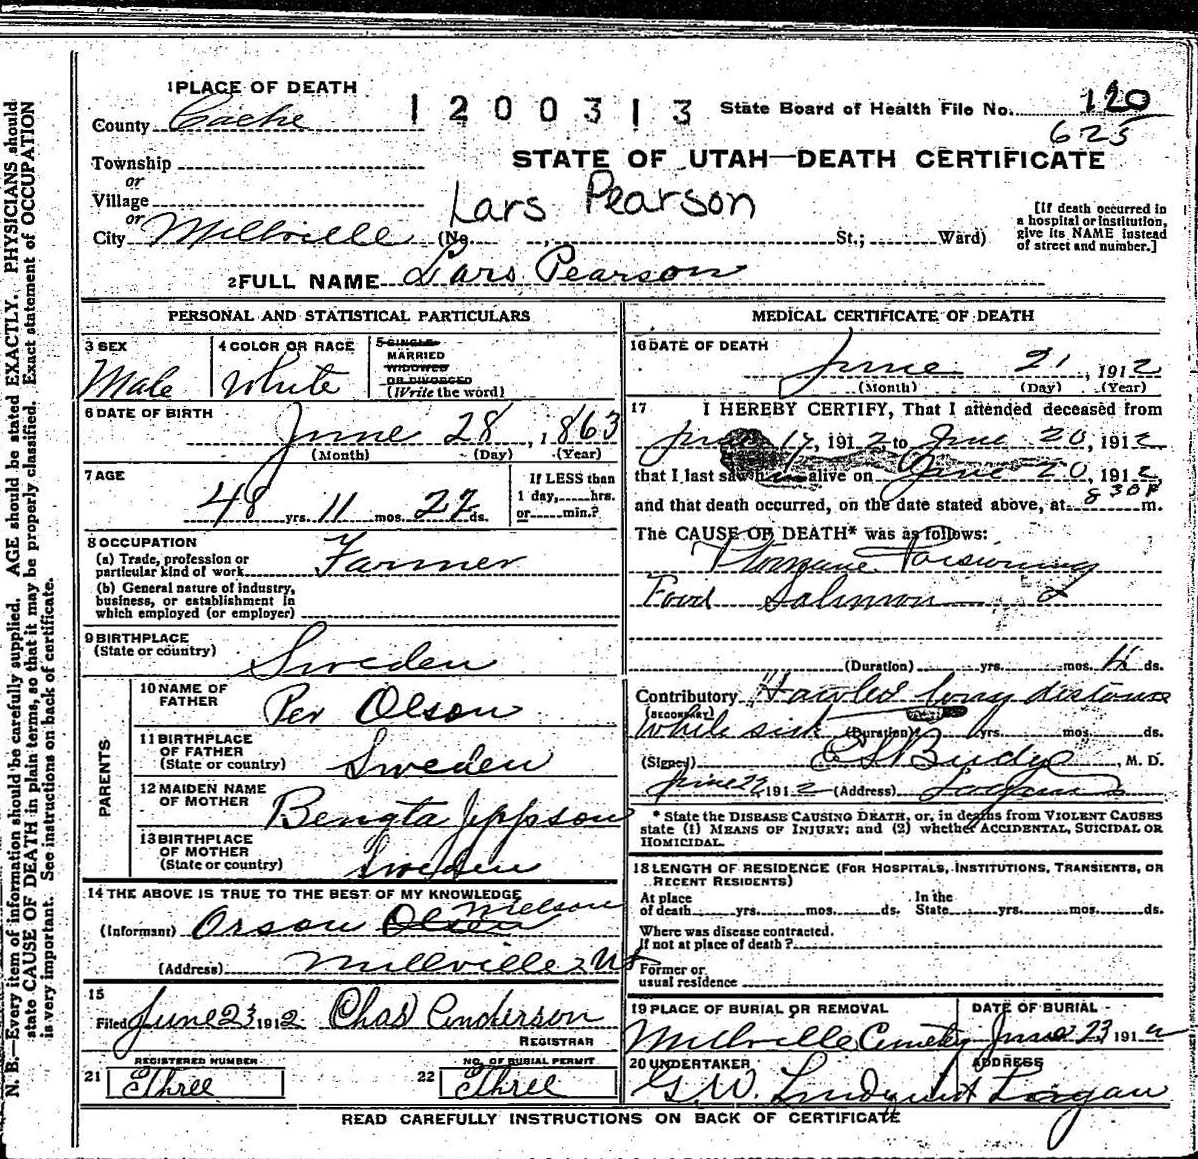 1 PLACE OF DEATH
County Cache
1200313
State Board of Health File No. 120
625
STATE OF UTAH—DEATH CERTIFICATE
Township
or
Village
or
City Millville (No. , St.; Ward)
Lars Pearson
[If death occurred in
a hospital or institution,
give its NAME instead
of street and number.]
2 FULL NAME Lars Pearson
PERSONAL AND STATISTICAL PARTICULARS
3 SEX
Male
4 COLOR OR RACE
White
5 SINGLE
MARRIED
WIDOWED
OR DIVORCED
(Write the word)
6 DATE OF BIRTH
June 28, 1863
(Month) (Day) (Year)
7 AGE
48 yrs. 11 mos. 22 ds.
If LESS than
1 day, hrs.
or min.?
8 OCCUPATION
(a) Trade, profession or
particular kind of work Farmer
(b) General nature of industry,
business, or establishment in
which employed (or employer)
9 BIRTHPLACE
(State or country) Sweden
PARENTS
10 NAME OF
FATHER Per Olson
11 BIRTHPLACE
OF FATHER
(State or country) Sweden
12 MAIDEN NAME
OF MOTHER Bengta Jeppson
13 BIRTHPLACE
OF MOTHER
(State or country) Sweden
14 THE ABOVE IS TRUE TO THE BEST OF MY KNOWLEDGE
(Informant) Orson Olson Nielson
(Address) Millville Ut
15
Filed June 23 1912 Chas Anderson
REGISTRAR
REGISTERED NUMBER
21 Ethree
NO. OF BURIAL PERMIT
22 Ethree
MEDICAL CERTIFICATE OF DEATH
16 DATE OF DEATH
June 21, 1912
(Month) (Day) (Year)
17 I HEREBY CERTIFY, That I attended deceased from
June 17, 1912, to June 20, 1912
that I last saw him alive on June 20, 1912,
and that death occurred, on the date stated above, at 830P m.
The CAUSE OF DEATH* was as follows:
Ptomaine Poisioning
Food Salmon
(Duration) yrs. mos. 4 ds.
Contributory Hawled long distance
(SECONDARY)
While sick (Duration) yrs. mos. ds.
(Signed) E S Budge, M. D.
June 22, 1912 (Address) Logan
* State the DISEASE CAUSING DEATH, or, in deaths from VIOLENT CAUSES
state (1) MEANS OF INJURY; and (2) whether ACCIDENTAL, SUICIDAL OR
HOMICIDAL.
18 LENGTH OF RESIDENCE (FOR HOSPITALS, INSTITUTIONS, TRANSIENTS, OR
RECENT RESIDENTS)
At place
of death yrs. mos. ds.
In the
State yrs. mos. ds.
Where was disease contracted.
if not at place of death?
Former or
usual residence
19 PLACE OF BURIAL OR REMOVAL
Millville Cemetery
DATE OF BURIAL
June 23 1912
20 UNDERTAKER
G. W. Lindquist
ADDRESS
Logan
READ CAREFULLY INSTRUCTIONS ON BACK OF CERTIFICATE
N. B.—Every item of information should be carefully supplied. AGE should be stated EXACTLY. PHYSICIANS should
state CAUSE OF DEATH in plain terms, so that it may be properly classified. Exact statement of OCCUPATION
is very important. See instructions on back of certificate.